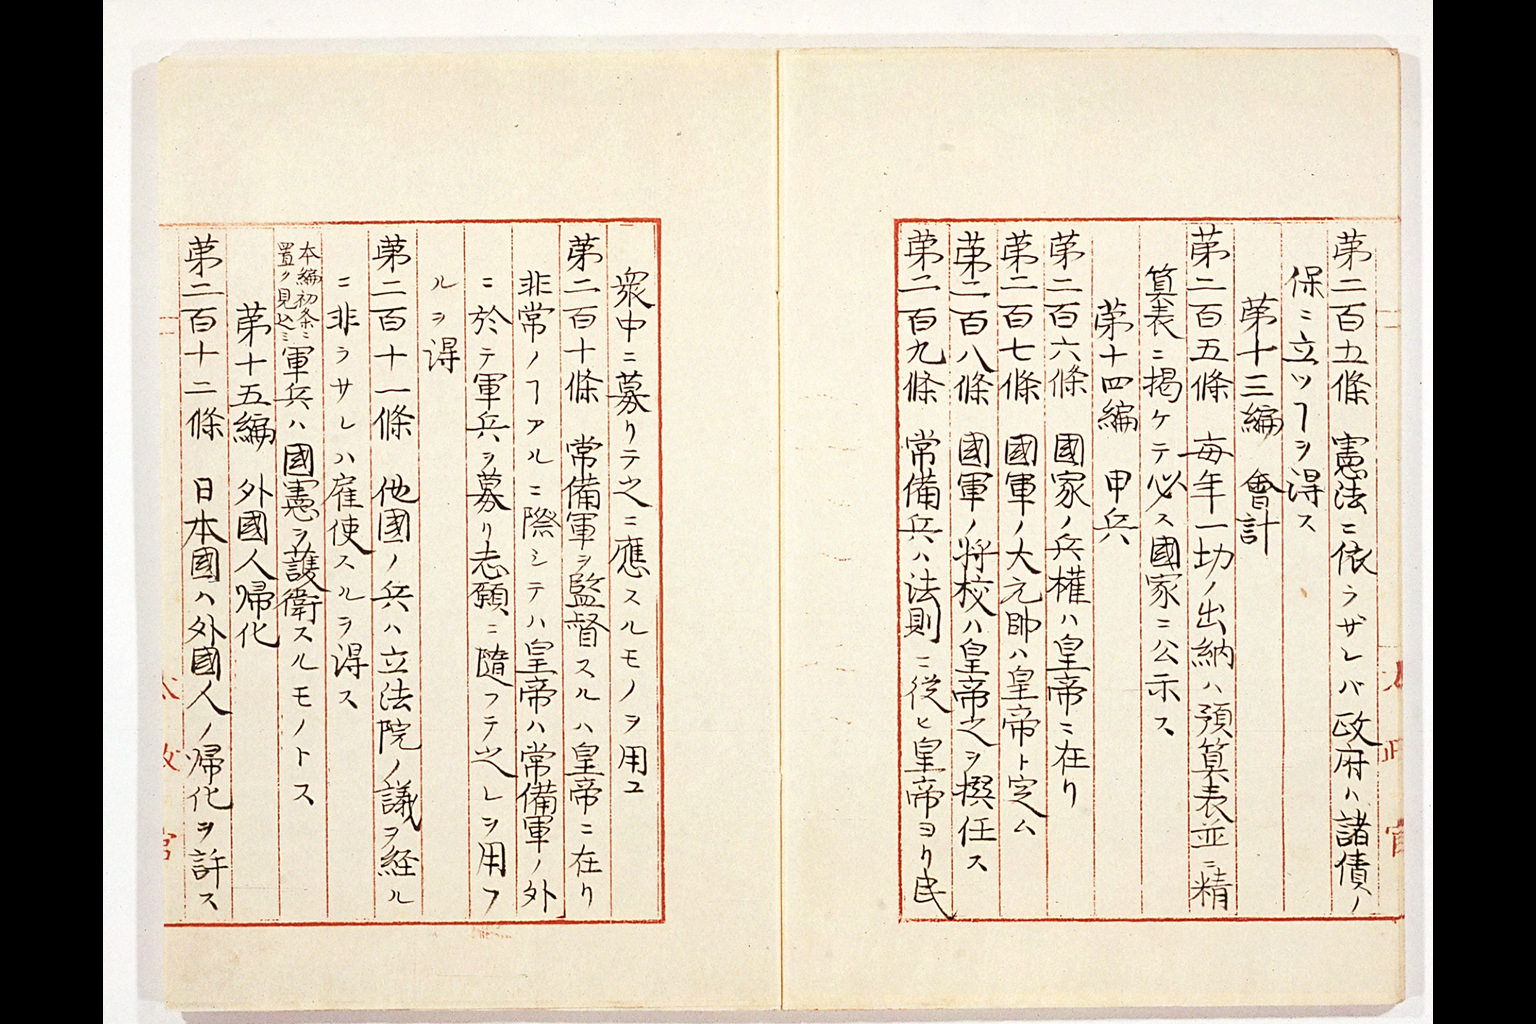 第二百五條　憲法ニ依ラザレバ政府ハ諸債ノ
保ニ立ツヿヲ得ス
第十三編　會計
第二百五條　毎年一切ノ出納ハ預算表並ニ精
算表ニ掲ケテ必ス國家ニ公示ス
第十四編　甲兵
第二百六條　國家ノ兵權ハ皇帝ニ在リ
第二百七條　國軍ノ大元帥ハ皇帝ト定ム
第二百八條　國軍ノ将校ハ皇帝之ヲ撰任ス
第二百九條　常備兵ハ法則ニ從ヒ皇帝ヨリ民
衆中ニ募リテ之ニ應スルモノヲ用ユ
第二百十條　常備軍ヲ監督スルハ皇帝ニ在リ
非常ノヿアルニ際シテハ皇帝ハ常備軍ノ外
ニ於テ軍兵ヲ募リ志願ニ隨フテ之レヲ用フ
ルヲ得
第二百十一條　他國ノ兵ハ立法院ノ議ヲ経ル
ニ非ラサレハ雇使スルヲ得ス
本編初条ニ
置ノ見込ミ
軍兵ハ國憲ヲ護衛スルモノトス
第十五編　外國人帰化
第二百十二條　日本國ハ外國人ノ帰化ヲ許ス
太政官